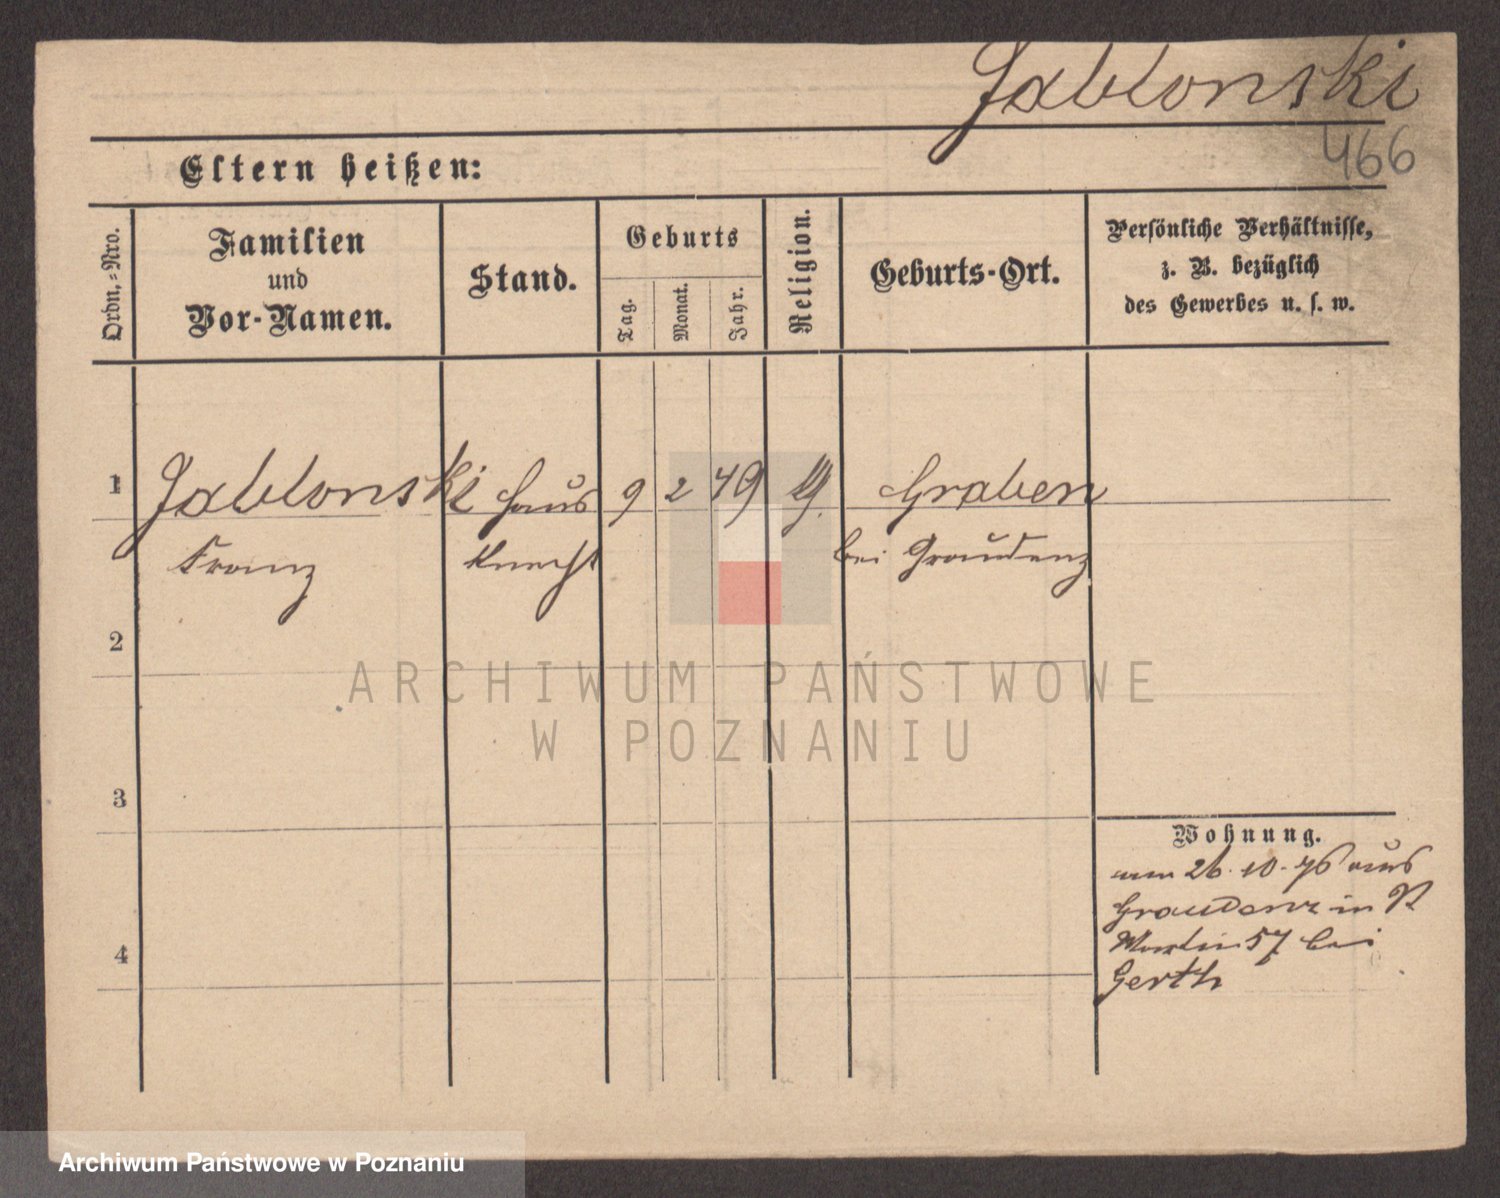 Jablonski
466
Eltern heißen:
Ordn.-Nro.
Familien
und
Vor-Namen.
Stand.
Geburts
Tag.
Monat.
Jahr.
Religion.
Geburts-Ort.
Persönliche Verhältnisse,
z. B. bezüglich
des Gewerbes u. s. w.
1 Jablonski Haus 9 2 49 Graben
Franz Knecht bei Graudenz
2
ARCHIWUM PAŃSTWOWE
W POZNANIU
3
Wohnung.
26.10.76 aus
Graudenz in St
4
Martin 57 bei
Gerth
Archiwum Państwowe w Poznaniu